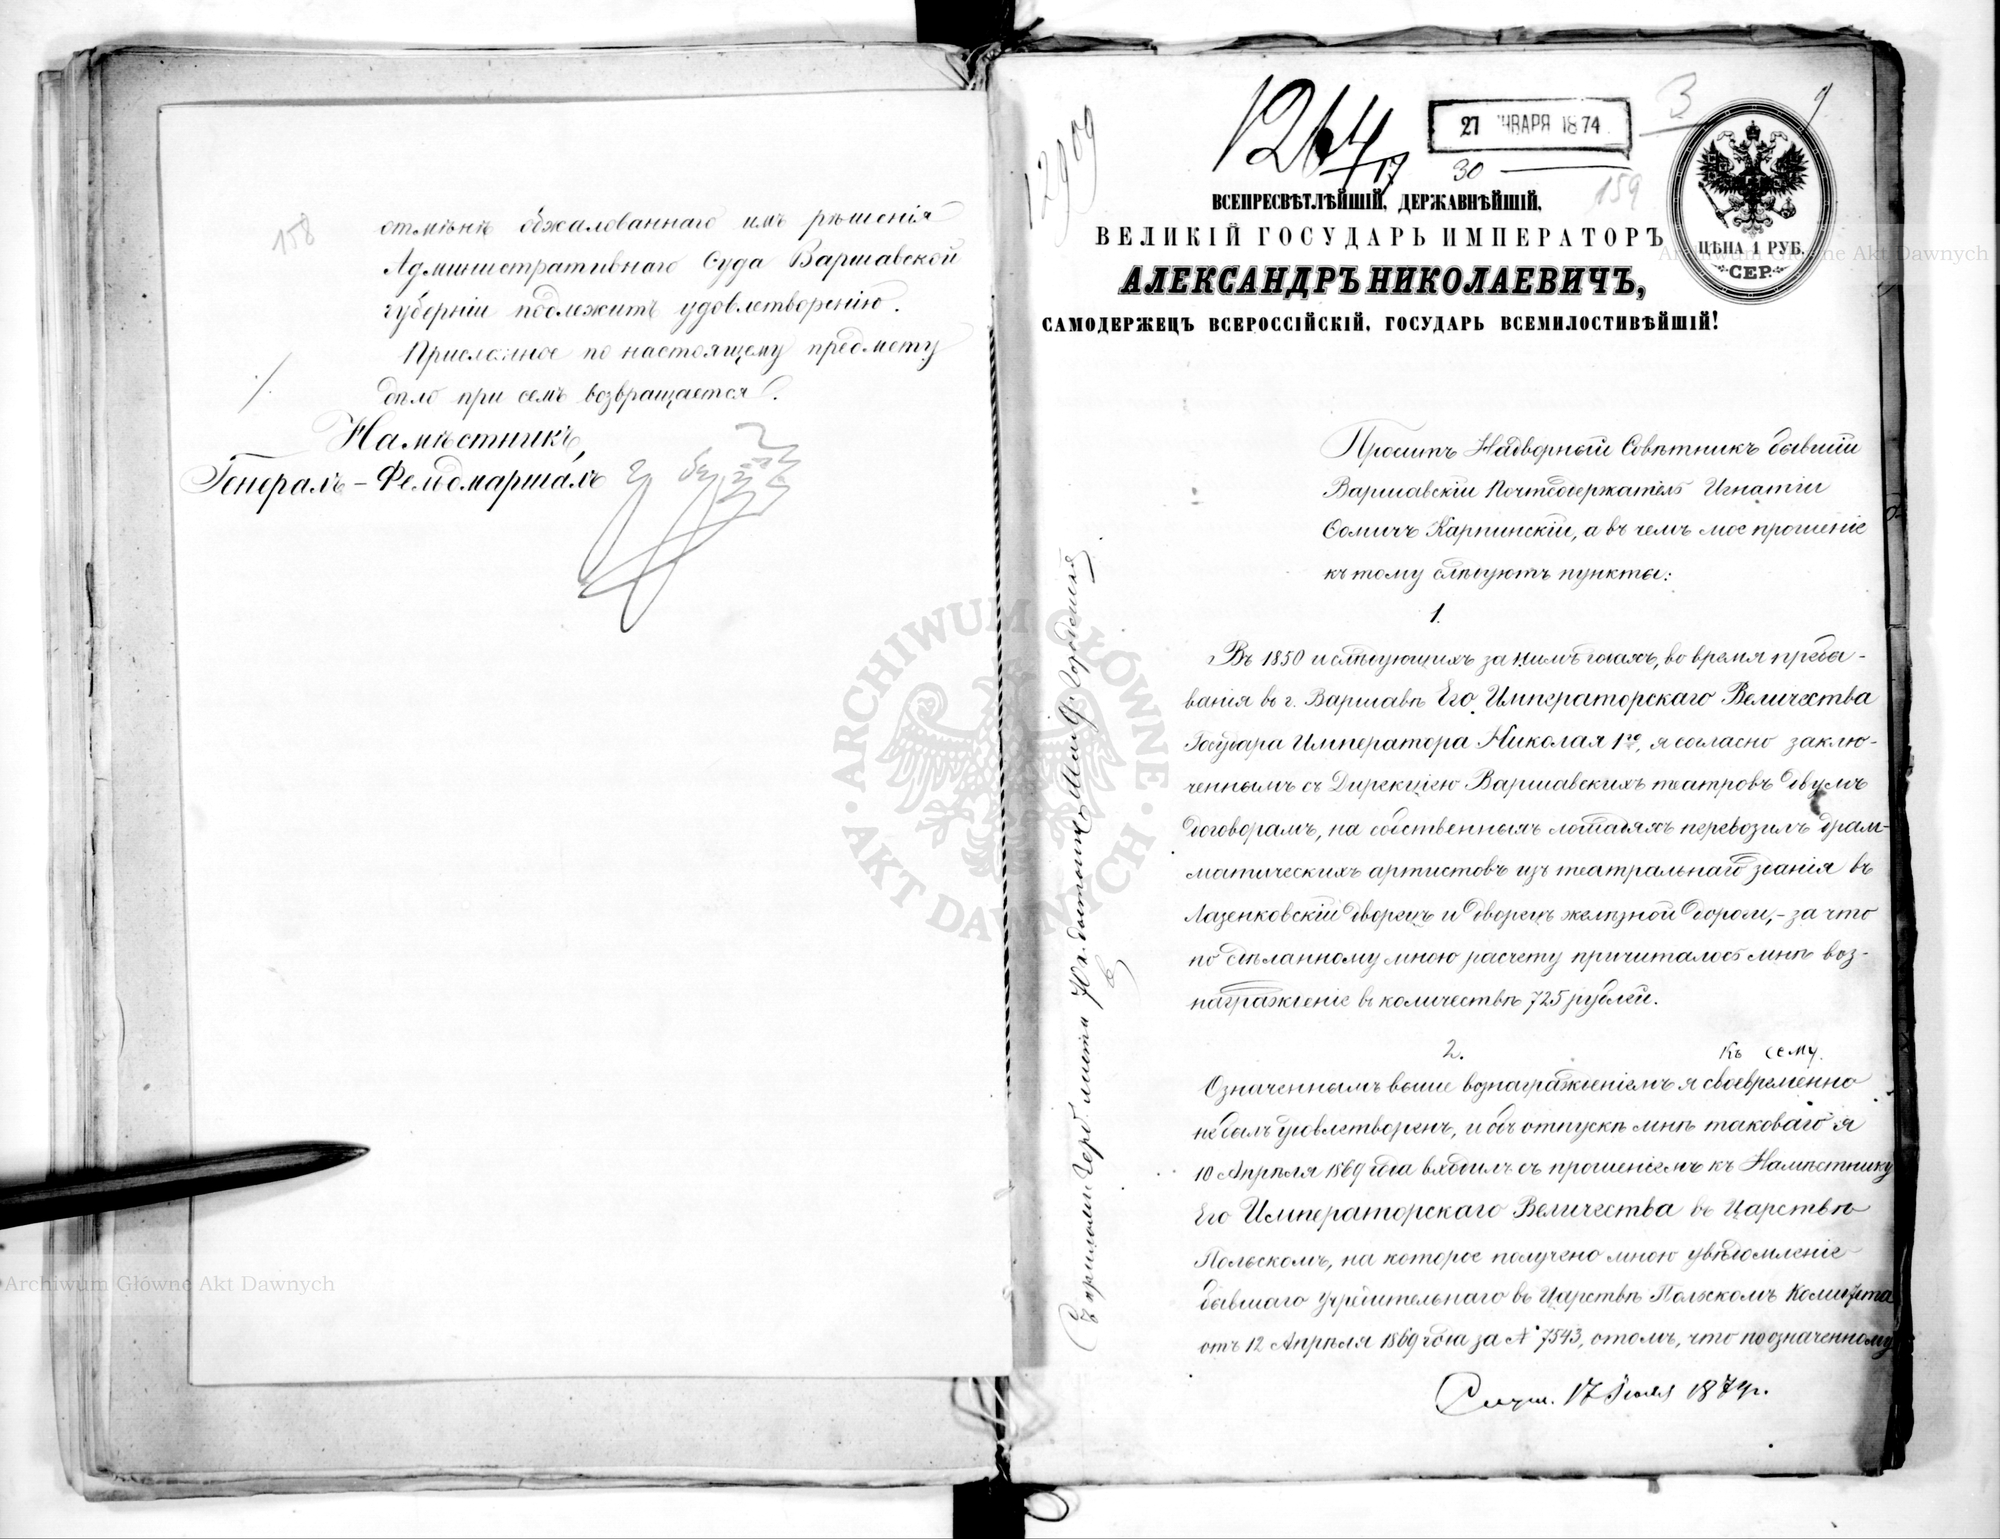 158
отмѣнѣ обжалованнаго имъ рѣшенія
Административнаго Суда Варшавской
губерніи подлежитъ удовлетворенію.
Присланное по настоящему предмету
дѣло при семъ возвращается.
Намѣстникъ,
Генералъ-Фельдмаршалъ
12909
1264
17
27 ЯНВАРЯ 1874
30
3
159
ЦѢНА 1 РУБ.
СЕР.
ВСЕПРЕСВѢТЛѢЙШІЙ, ДЕРЖАВНѢЙШІЙ,
ВЕЛИКІЙ ГОСУДАРЬ ИМПЕРАТОРЪ
АЛЕКСАНДРЪ НИКОЛАЕВИЧЪ,
САМОДЕРЖЕЦЪ ВСЕРОССІЙСКІЙ, ГОСУДАРЬ ВСЕМИЛОСТИВѢЙШІЙ!
Проситъ Надворный Совѣтникъ бывшій
Варшавскій Почтсодержатель Игнатій
Ѳомичъ Карпинскій, а въ чемъ мое прошеніе
къ тому слѣдуютъ пункты:
1.
Въ 1850 и слѣдующихъ за нимъ годахъ, во время пребы-
ванія въ г. Варшавѣ Его Императорскаго Величества
Государя Императора Николая 1го, я согласно заклю-
ченнымъ съ Дирекціею Варшавскихъ театровъ двумъ
договорамъ, на собственныхъ лошадяхъ перевозилъ драм-
матическихъ артистовъ изъ театральнаго зданія въ
Лазенковскій дворецъ и дворецъ желѣзной дороги,- за что
по сдѣланному мною расчету причиталось мнѣ воз-
награжденіе въ количествѣ 725 рублей.
2.
къ сему
Означеннымъ выше вознагражденіемъ я своевременно
не былъ удовлетворенъ, и объ отпускѣ мнѣ таковаго я
10 Апрѣля 1869 года входилъ съ прошеніемъ къ Намѣстнику
Его Императорскаго Величества въ Царствѣ
Польскомъ, на которое получено мною увѣдомленіе
бывшаго учредительнаго въ Царствѣ Польскомъ Комитета
отъ 12 Апрѣля 1869 года за № 7543, о томъ, что по означенному
17 Іюля 1874 г.
ARCHIWUM GŁÓWNE AKT DAWNYCH
Archiwum Główne Akt Dawnych
Archiwum Główne Akt Dawnych